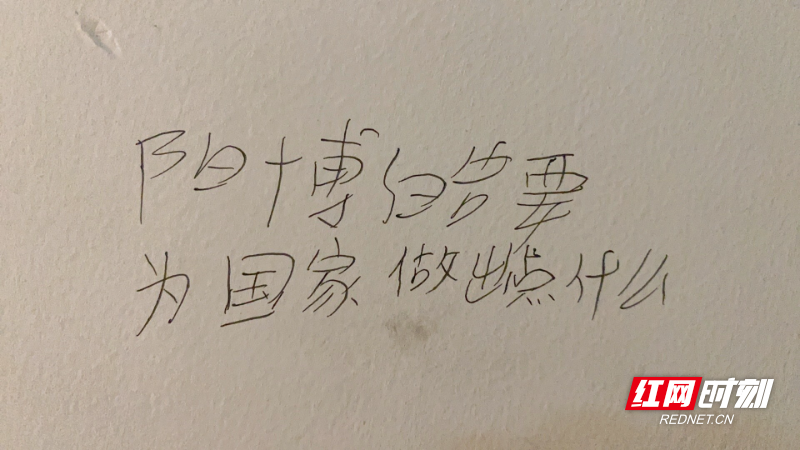 阳博皓要
为国家做出点什么
红网时刻
REDNET.CN